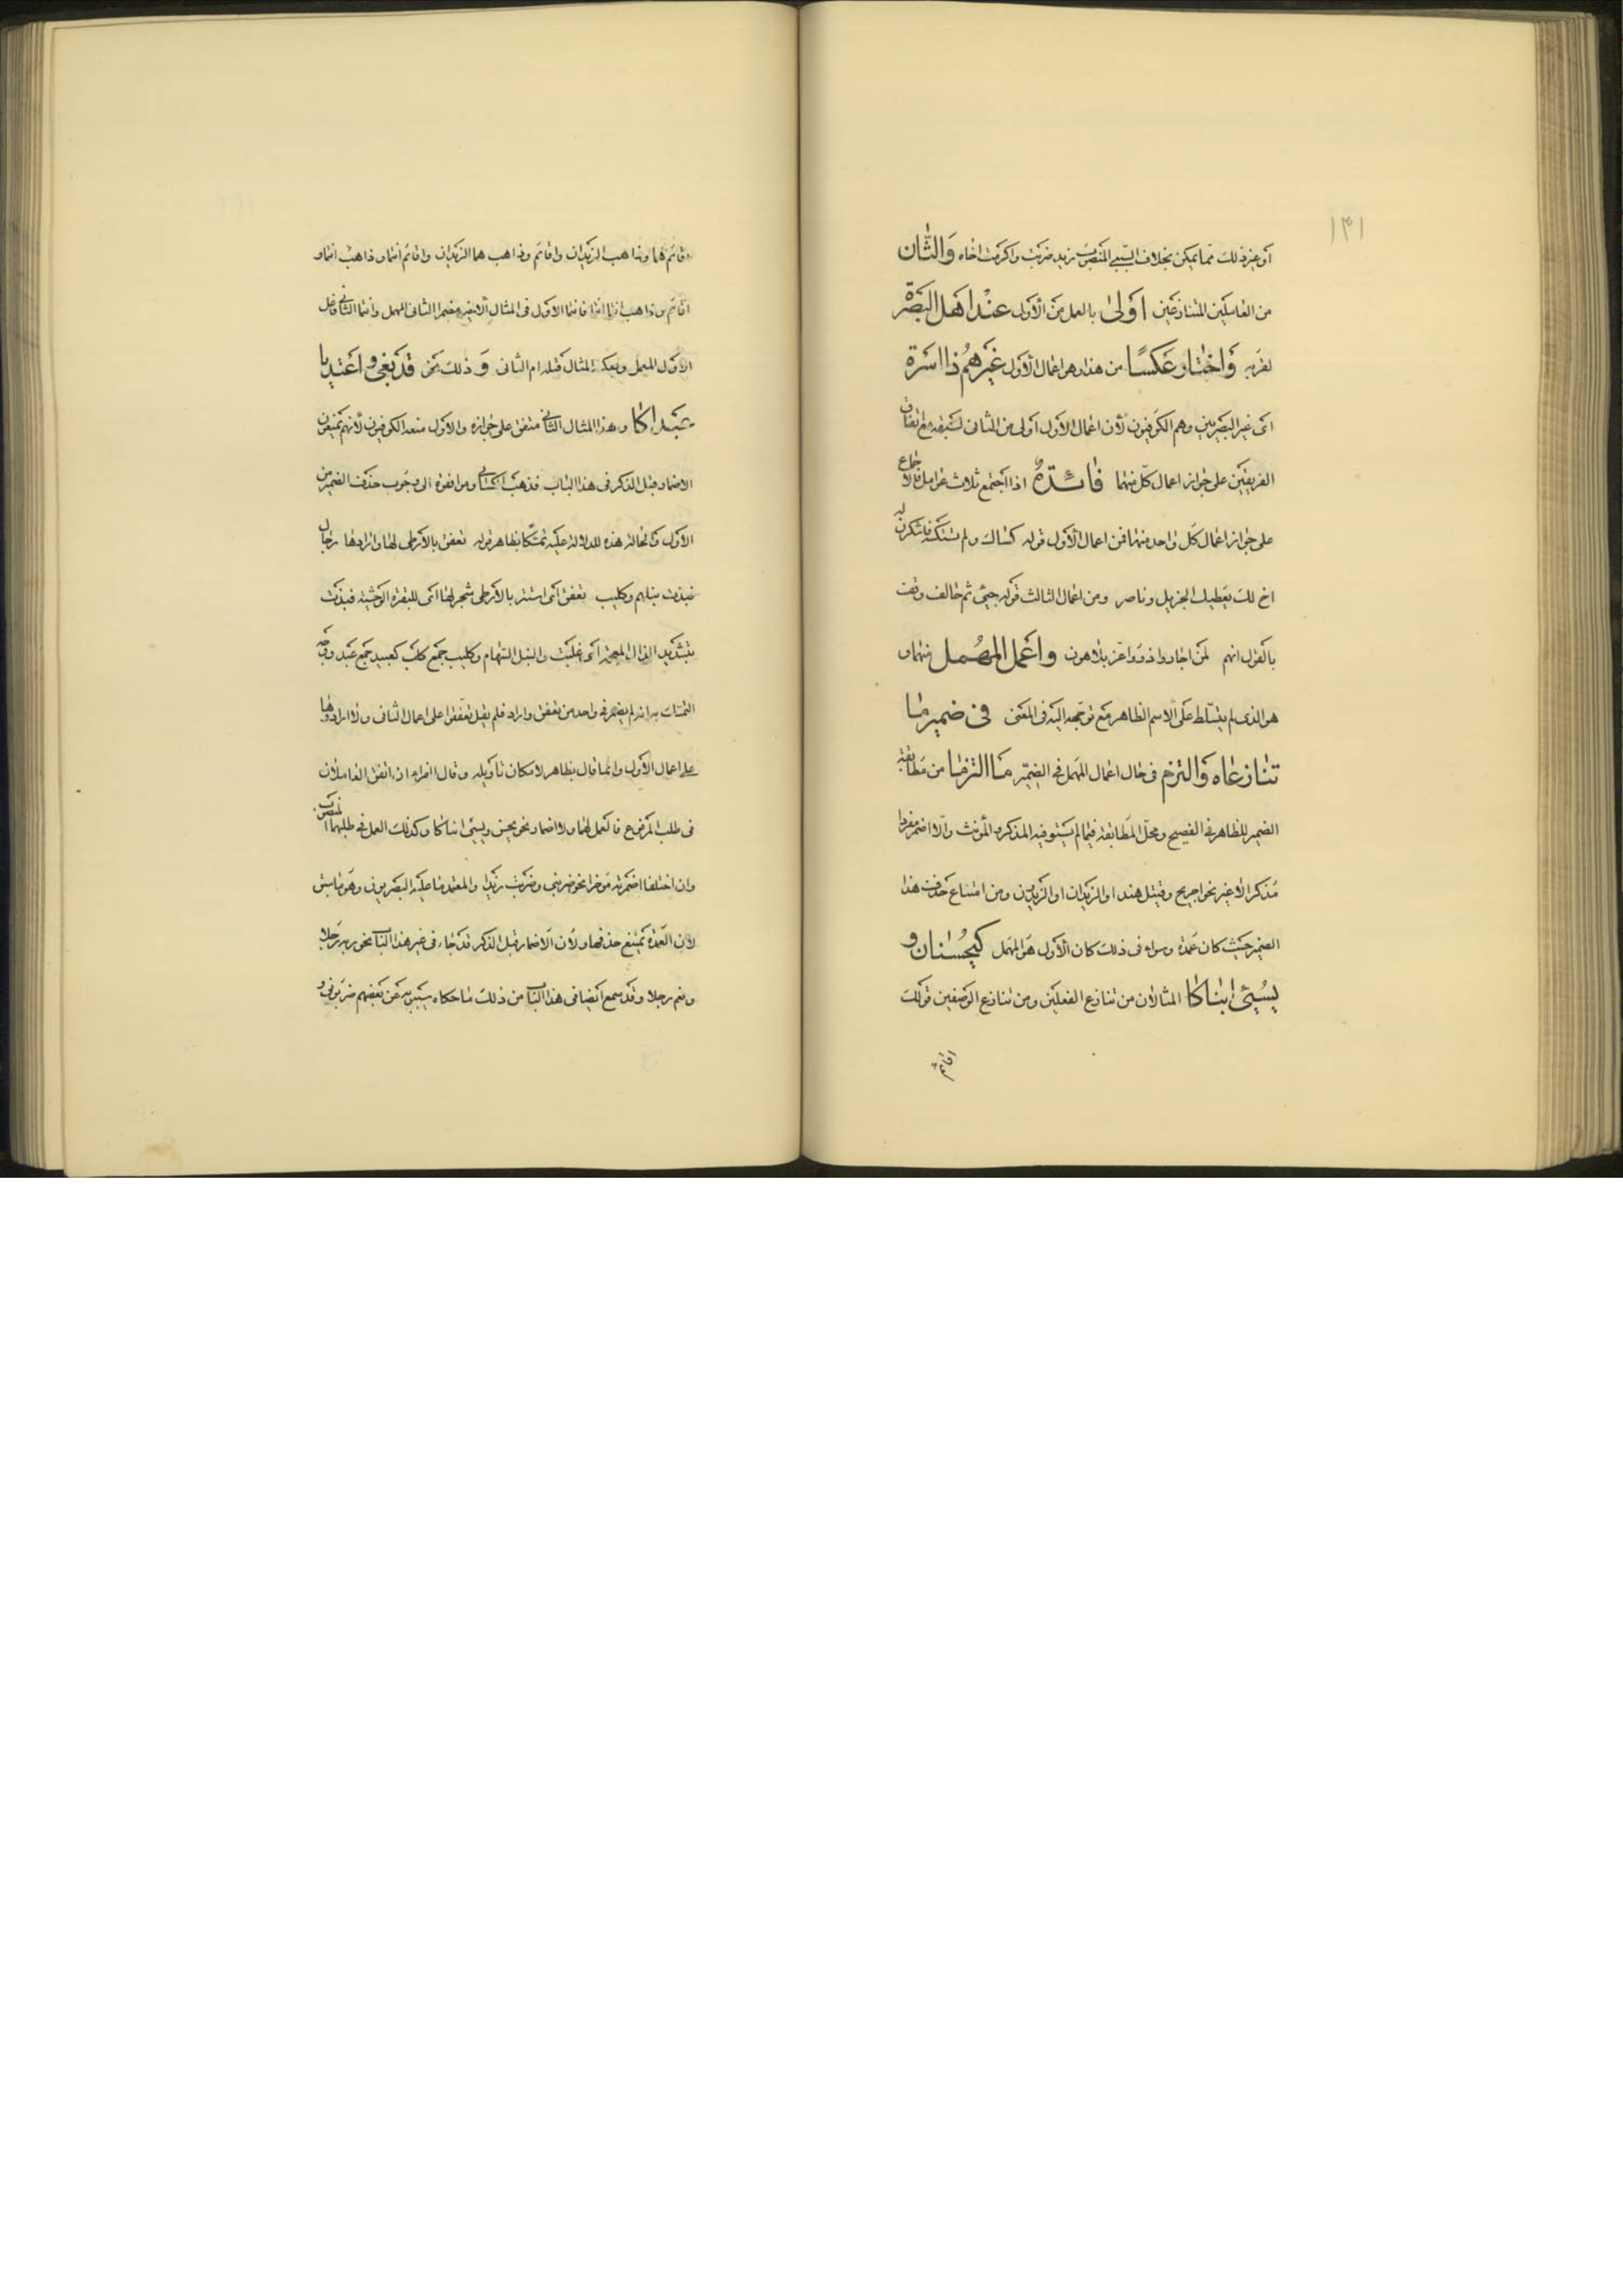 ١٣١
أو غير ذلك مما يمكن بخلاف السببي المنصوب زيد ضربت وأكرمت أخاه وَالثّان
من العاملين المتنازعين أولى بالعمل من الأول عند أهل البصرة
لقربه وَاختار عكسًا من هذا وهو إعمال الأول غيرهم ذا أسرة
أي غير البصريين وهم الكوفيون لأن إعمال الأول أولى من الثاني لسبقه مع اتفاق
الفريقين على جواز إعمال كل منهما فائدة إذا اجتمع ثلاث عوامل فالإجماع
على جواز إعمال كل واحد منها فمن إعمال الأول قوله كساك ولم تستكسه فاشكرن له
أخ لك يعطيك الجزيل وناصر ومن إعمال الثالث قوله جيء ثم حالف وقف
بالقوم إنهم لمن أجاروا ذوو اعز بلا هون وأعمل المهمل منهما و
هو الذي لم يتسلط على الاسم الظاهر مع توجهه إليه في المعنى في ضمير ما
تنازعاه وَالتزم في حال إعمال المهمل في الضمير مَا التزما من مطابقة
الضمير للظاهر في الفصيح ومحل المطابقة فيما لم يستو فيه المذكر والمؤنث وإلا أضمر مفردا
مذكرا لا غير نحو جريح وقتيل هند أو الزيدان أو الزيدون ومن امتناع حذف هذا
الضمير حيث كان عمدة وسواء في ذلك كان الأول هو المهمل كيحسنان و
يسيء ابناكا المثالان من تنازع الفعلين ومن تنازع الوصفين قولك
أقائم
أقائم هما وذاهب الزيدان وأقائم وذاهب هما الزيدان وأقائم أنتما وذاهب أنتما و
أقائم وذاهب أنتما أنتما فأنتما الأول في المثال الأخير مضمر الثاني المهمل وأنتما الثاني فاعل
الأول المعمل وبعكسه المثال قبله أم الثاني وَ ذلك نحو قد بغى و اعتديا
عبداكا وهذا المثال الثاني متفق على جوازه والأول منعه الكوفيون لأنهم يمنعون
الإضمار قبل الذكر في هذا الباب فذهب الكسائي ومن وافقوه إلى وجوب حذف الضمير من
الأول والحالة هذه للدلالة عليه تمسكا بظاهر قوله تعفق بالأرطى لها وأرادها رجال
فبذت نبلهم وكليب تعفق أي استتر بالأرطى شجر لها أي للبقرة الوحشية فبذت
بتشديد الذال المعجمة أي غلبت والنبل السهام وكليب جمع كلب كعبيد جمع عبد ووجه
التمسك به أنه لم يضمر في واحد من تعفق وأراد فلم يقل تعفقوا على إعمال الثاني ولا أرادوها
على إعمال الأول وإنما قال بظاهر لإمكان تأويله وقال الفراء إن اتفق العاملان
في طلب المرفوع فالعمل لهما ولا إضمار نحو يحسن ويسيء ابناكا وكذلك العمل في طلبهما المنصوب
وإن اختلفا أضمرته مؤخرا نحو ضربني وضربت زيدا والمعتمد ما عليه البصريون وهو ما سبق
لأن العمدة يمتنع حذفها ولأن الإضمار قبل الذكر قد جاء في غير هذا الباب نحو ربه رجلا
ونعم رجلا وقد سمع أيضا في هذا الباب من ذلك ما حكاه سيبويه عن بعضهم ضربوني و